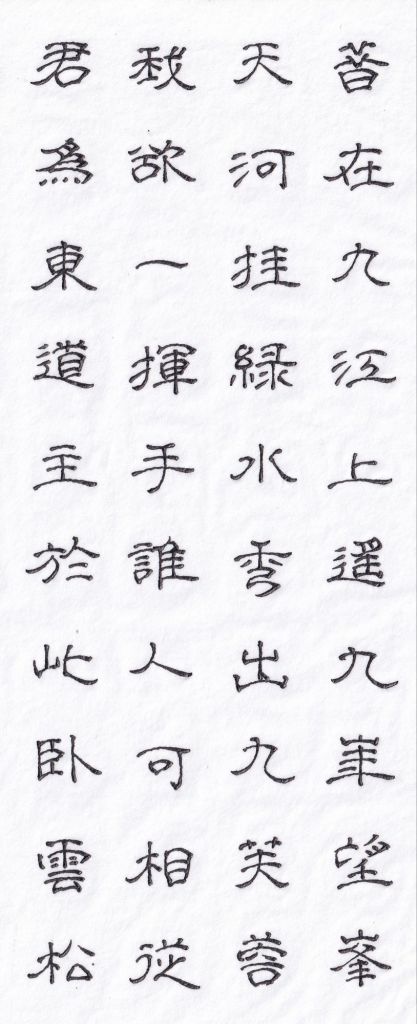 昔在九江上遥九崋望峯
天河挂緑水秀出九芙蓉
我欲一揮手誰人可相從
君爲東道主於此卧雲松